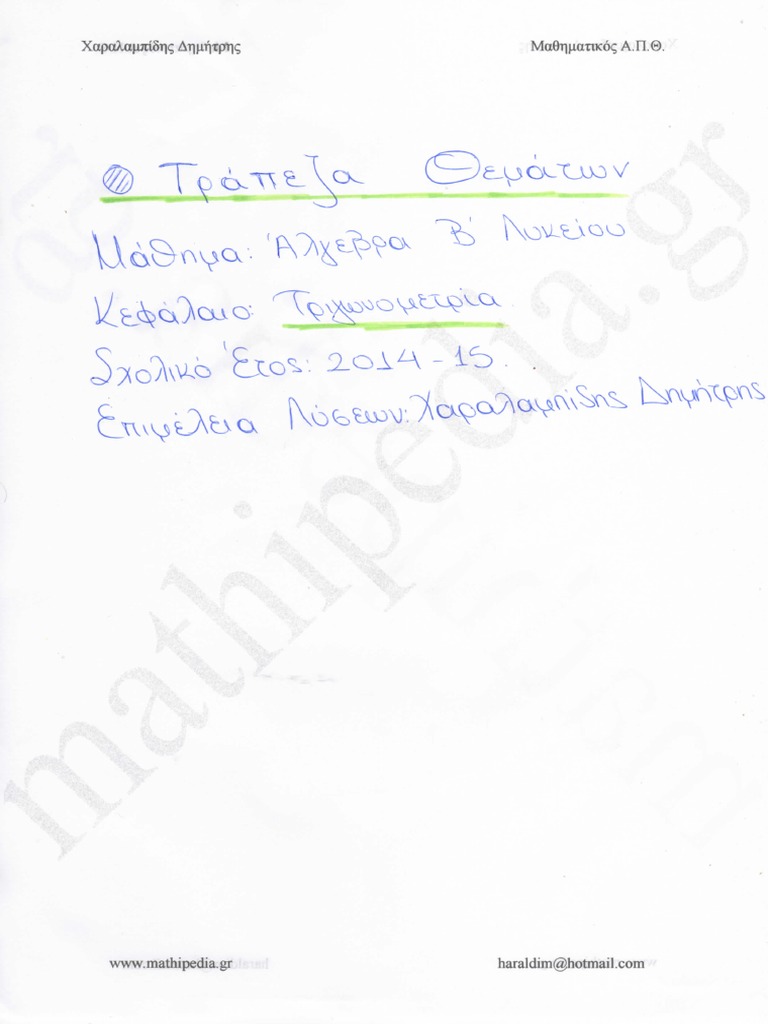 Χαραλαμπίδης Δημήτρης Μαθηματικός Α.Π.Θ.
Τράπεζα Θεμάτων
Μάθημα: Άλγεβρα Β' Λυκείου
Κεφάλαιο: Τριγωνομετρία.
Σχολικό Έτος: 2014-15.
Επιμέλεια Λύσεων: Χαραλαμπίδης Δημήτρης
mathipedia.gr
www.mathipedia.gr haraldim@hotmail.com